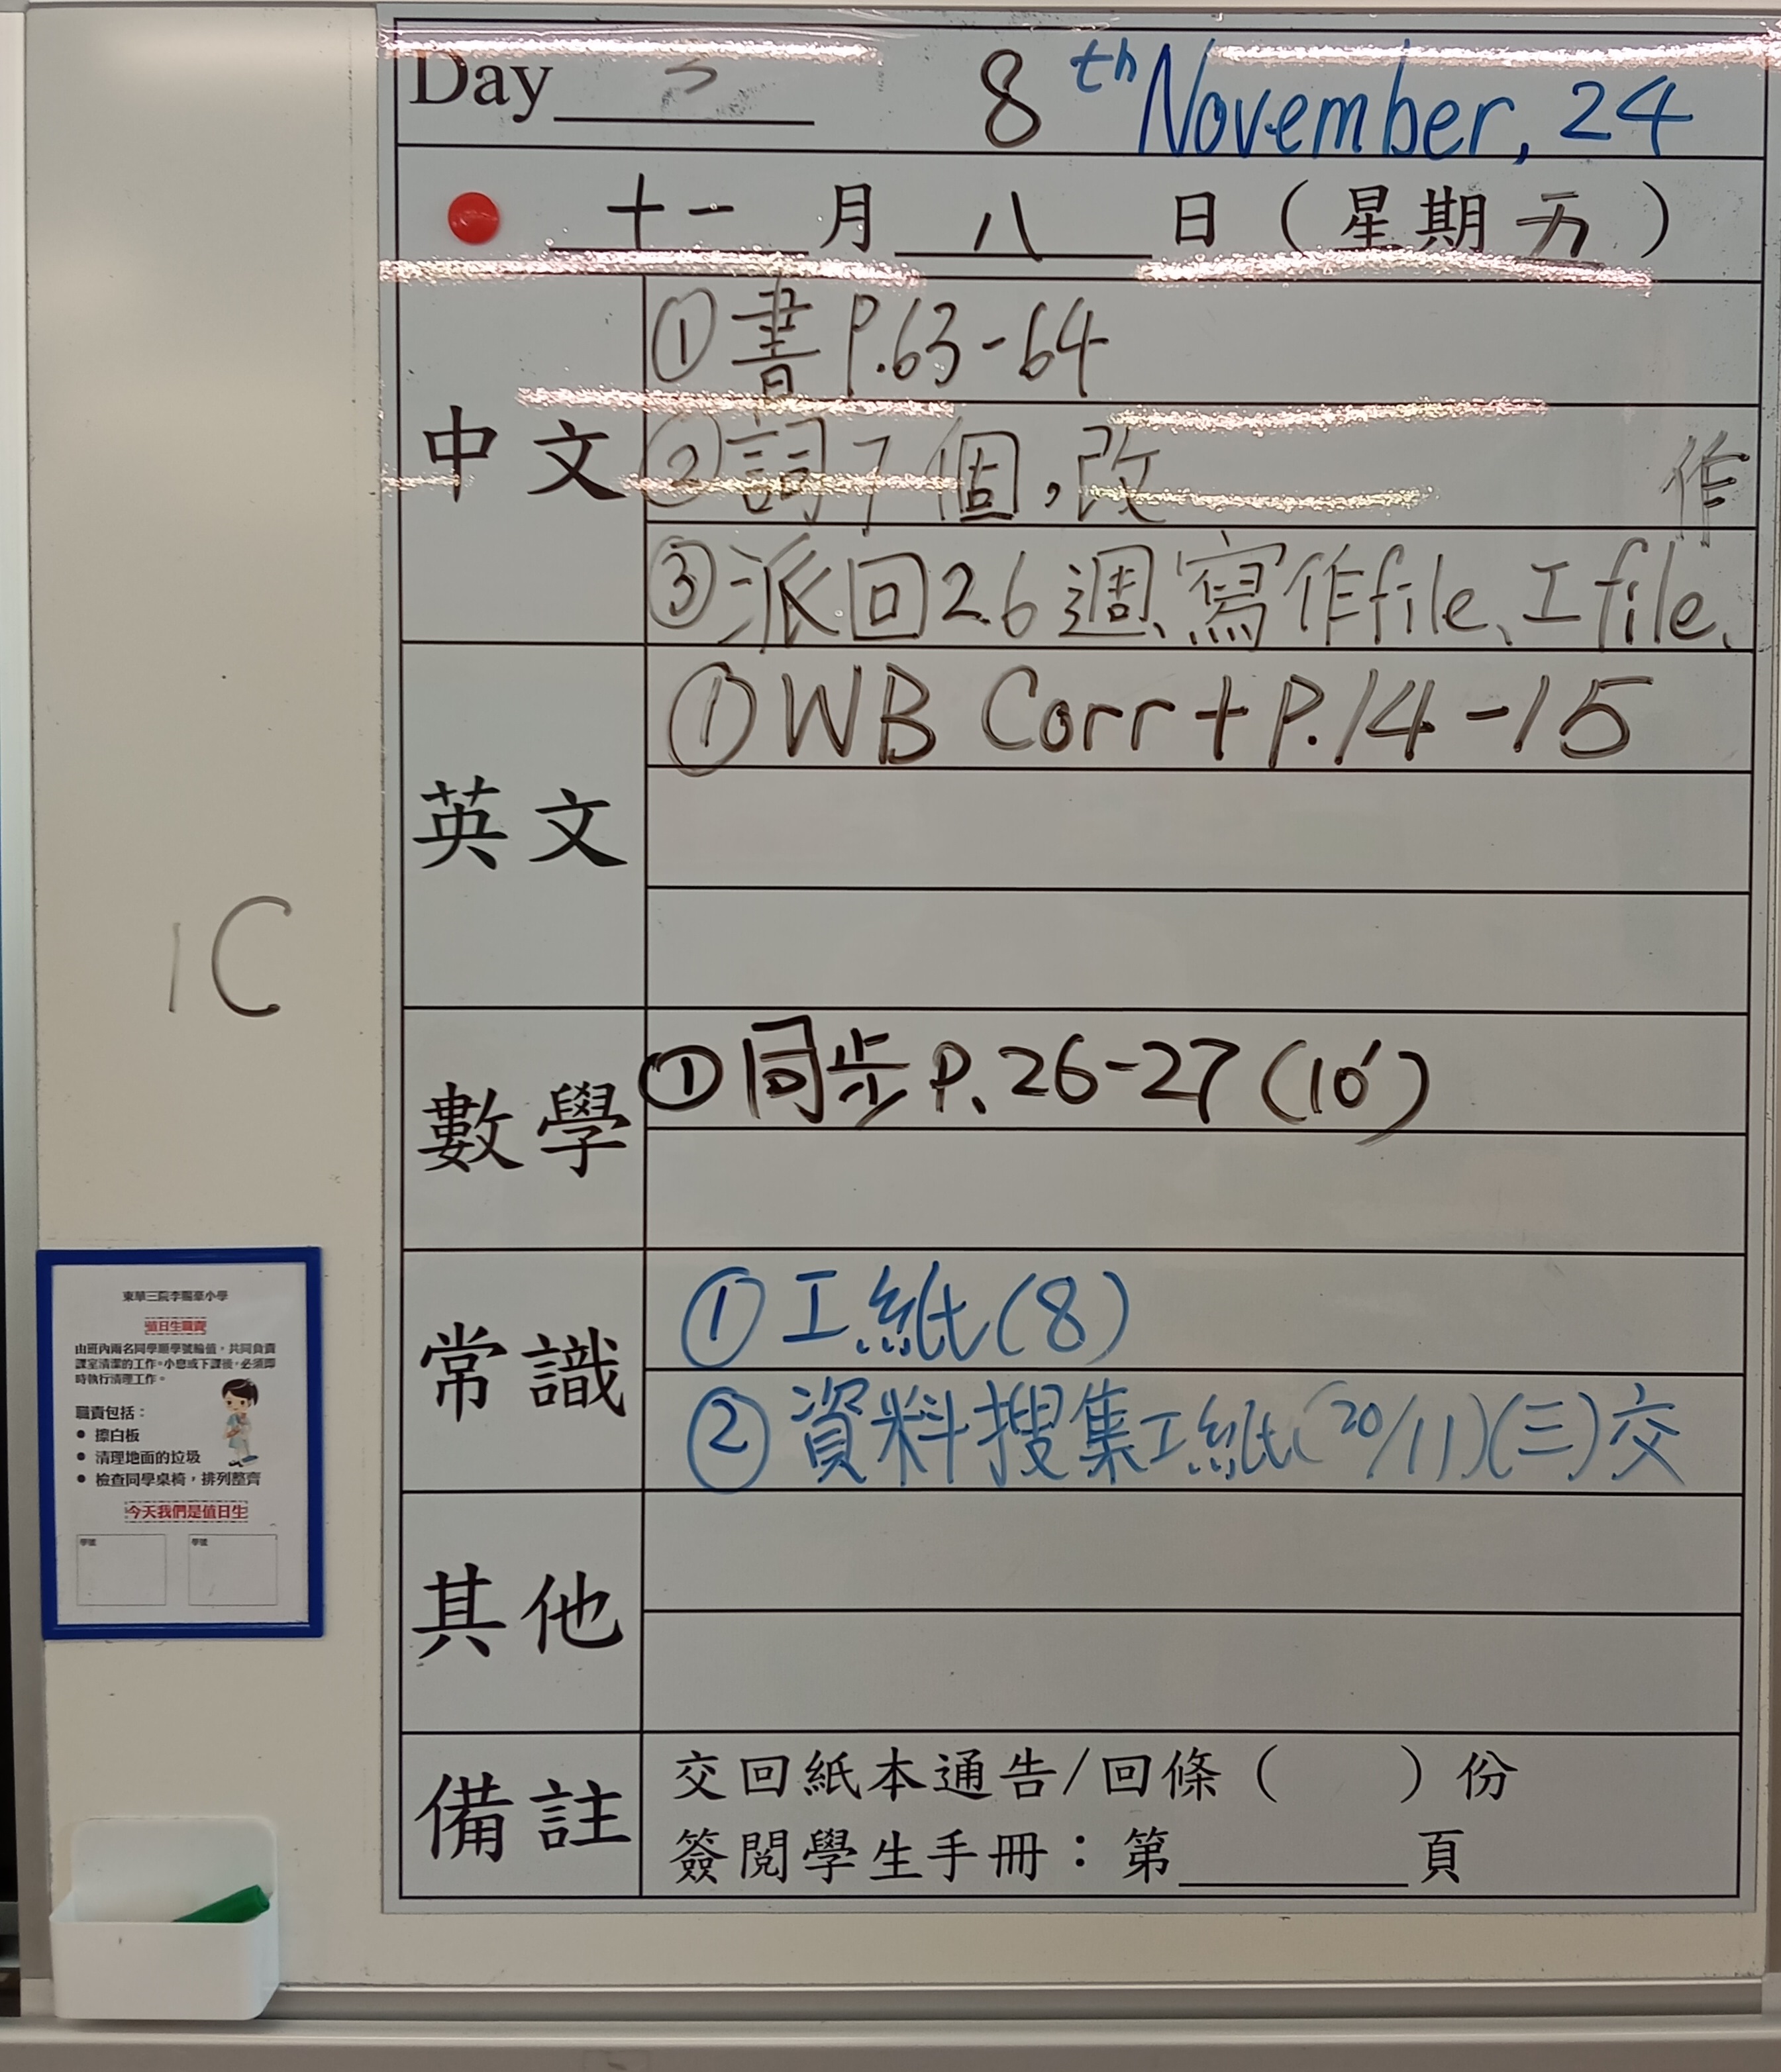 Day
8th November, 24
十一月八日（星期五）
中文
①書P.63-64
②詞7個,改
作
③派回2.6週、寫作file、工file、
英文
①WB Corr+P.14-15
1C
數學
①同步P.26-27(10')
常識
①工紙(8)
②資料搜集工紙(20/11)(三)交
其他
備註
交回紙本通告/回條（　　）份
簽閱學生手冊：第＿＿＿＿頁
值日生職責
由班內兩名同學順學號輪值，共同負責
課室清潔的工作。小息或下課後，必須即
時執行清理工作。
職責包括：
● 擦白板
● 清理地面的垃圾
● 檢查同學桌椅，排列整齊
今天我們是值日生
學號
學號